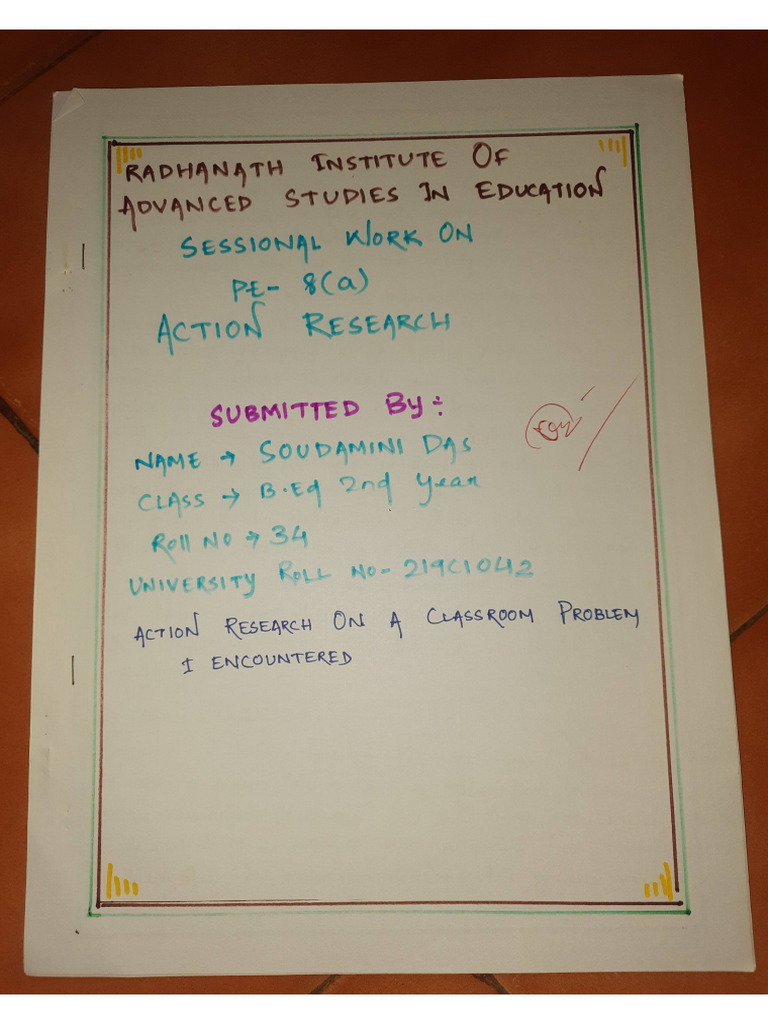 RADHANATH INSTITUTE OF
ADVANCED STUDIES IN EDUCATION
SESSIONAL WORK ON
PE- 8(a)
ACTION RESEARCH
SUBMITTED BY :-
NAME → SOUDAMINI DAS
CLASS → B.Ed 2nd Year
Roll No → 34
UNIVERSITY ROLL NO- 219C1042
ACTION RESEARCH ON A CLASSROOM PROBLEM
I ENCOUNTERED